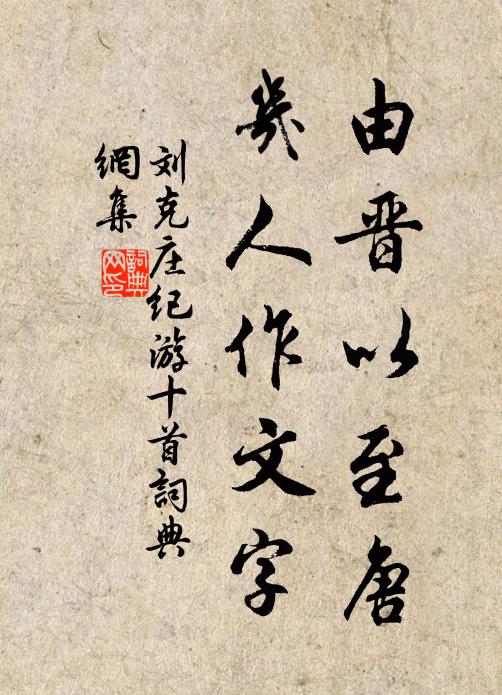 由晋以至唐
幾人作文字
刘克庄纪游十首詞典
網集
詞典
网印